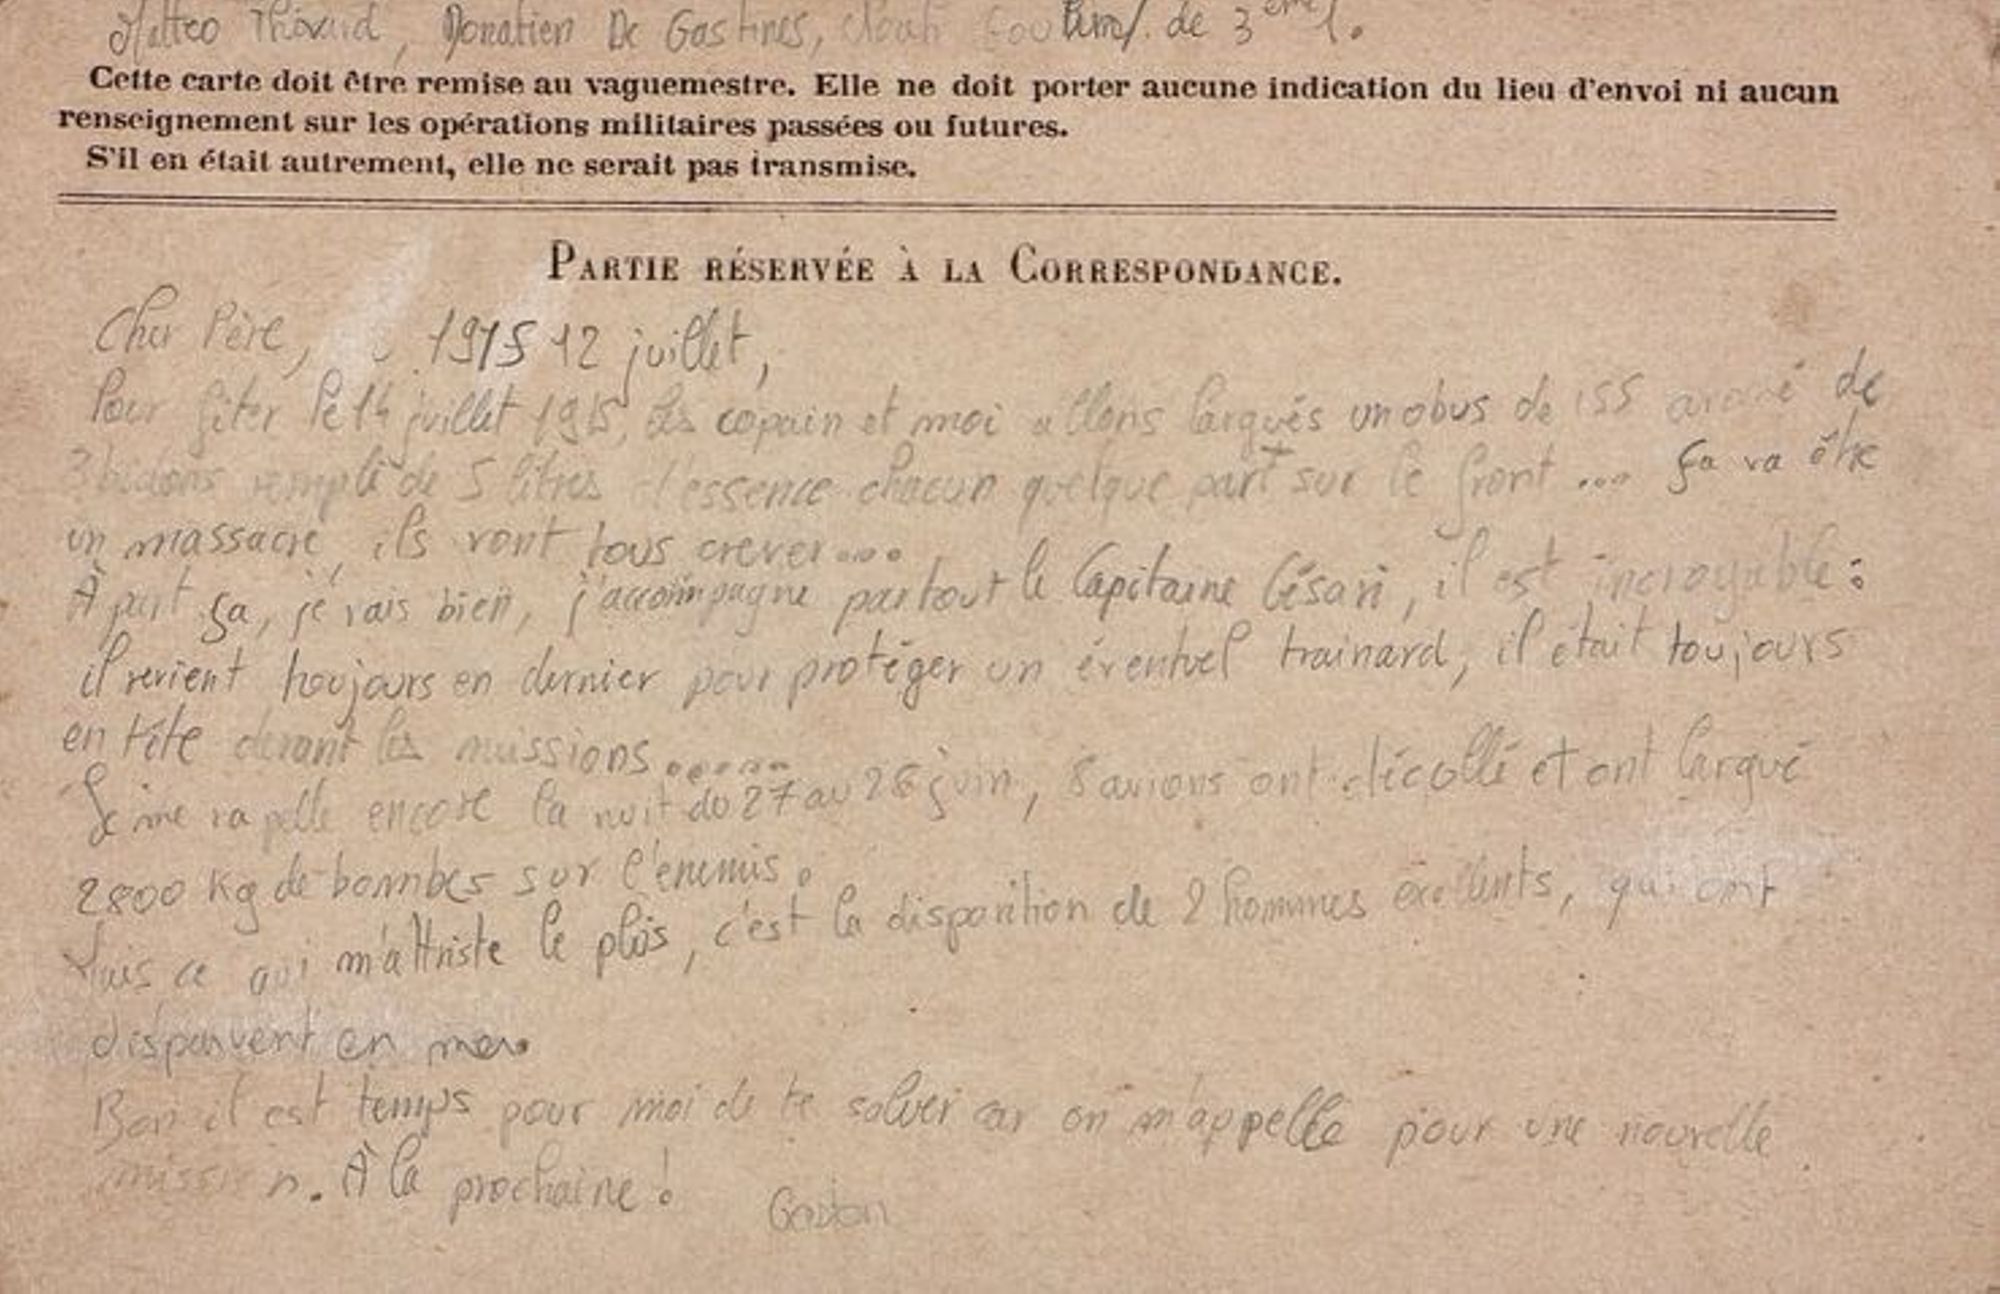 Matteo Thivard, Donatien De Gastines, de 3ème 1.
Cette carte doit être remise au vaguemestre. Elle ne doit porter aucune indication du lieu d'envoi ni aucun
renseignement sur les opérations militaires passées ou futures.
S'il en était autrement, elle ne serait pas transmise.
PARTIE RÉSERVÉE À LA CORRESPONDANCE.
Cher Père, 1915 12 juillet,
Pour fêter le 14 juillet 1915, les copain et moi allons largués un obus de 155 armé de
3 bidons remplit de 5 litres d'essence chacun quelque part sur le front ... ça va être
un massacre, ils vont tous crever....
À part ça, je vais bien, j'accompagne partout le Capitaine Césari, il est incroyable :
il revient toujours en dernier pour protéger un éventuel trainard, il était toujours
en tête devant les missions......
Je me rapelle encore la nuit du 27 au 28 juin, 8 avions ont décollé et ont largué
2800 Kg de bombes sur l'enemis.
Mais ce qui m'attriste le plus, c'est la disparition de 2 hommes exellents, qui ont
disparurent en mer.
Bon il est temps pour moi de te saluer car on m'appelle pour une nouvelle
mission. À la prochaine !
Gaston